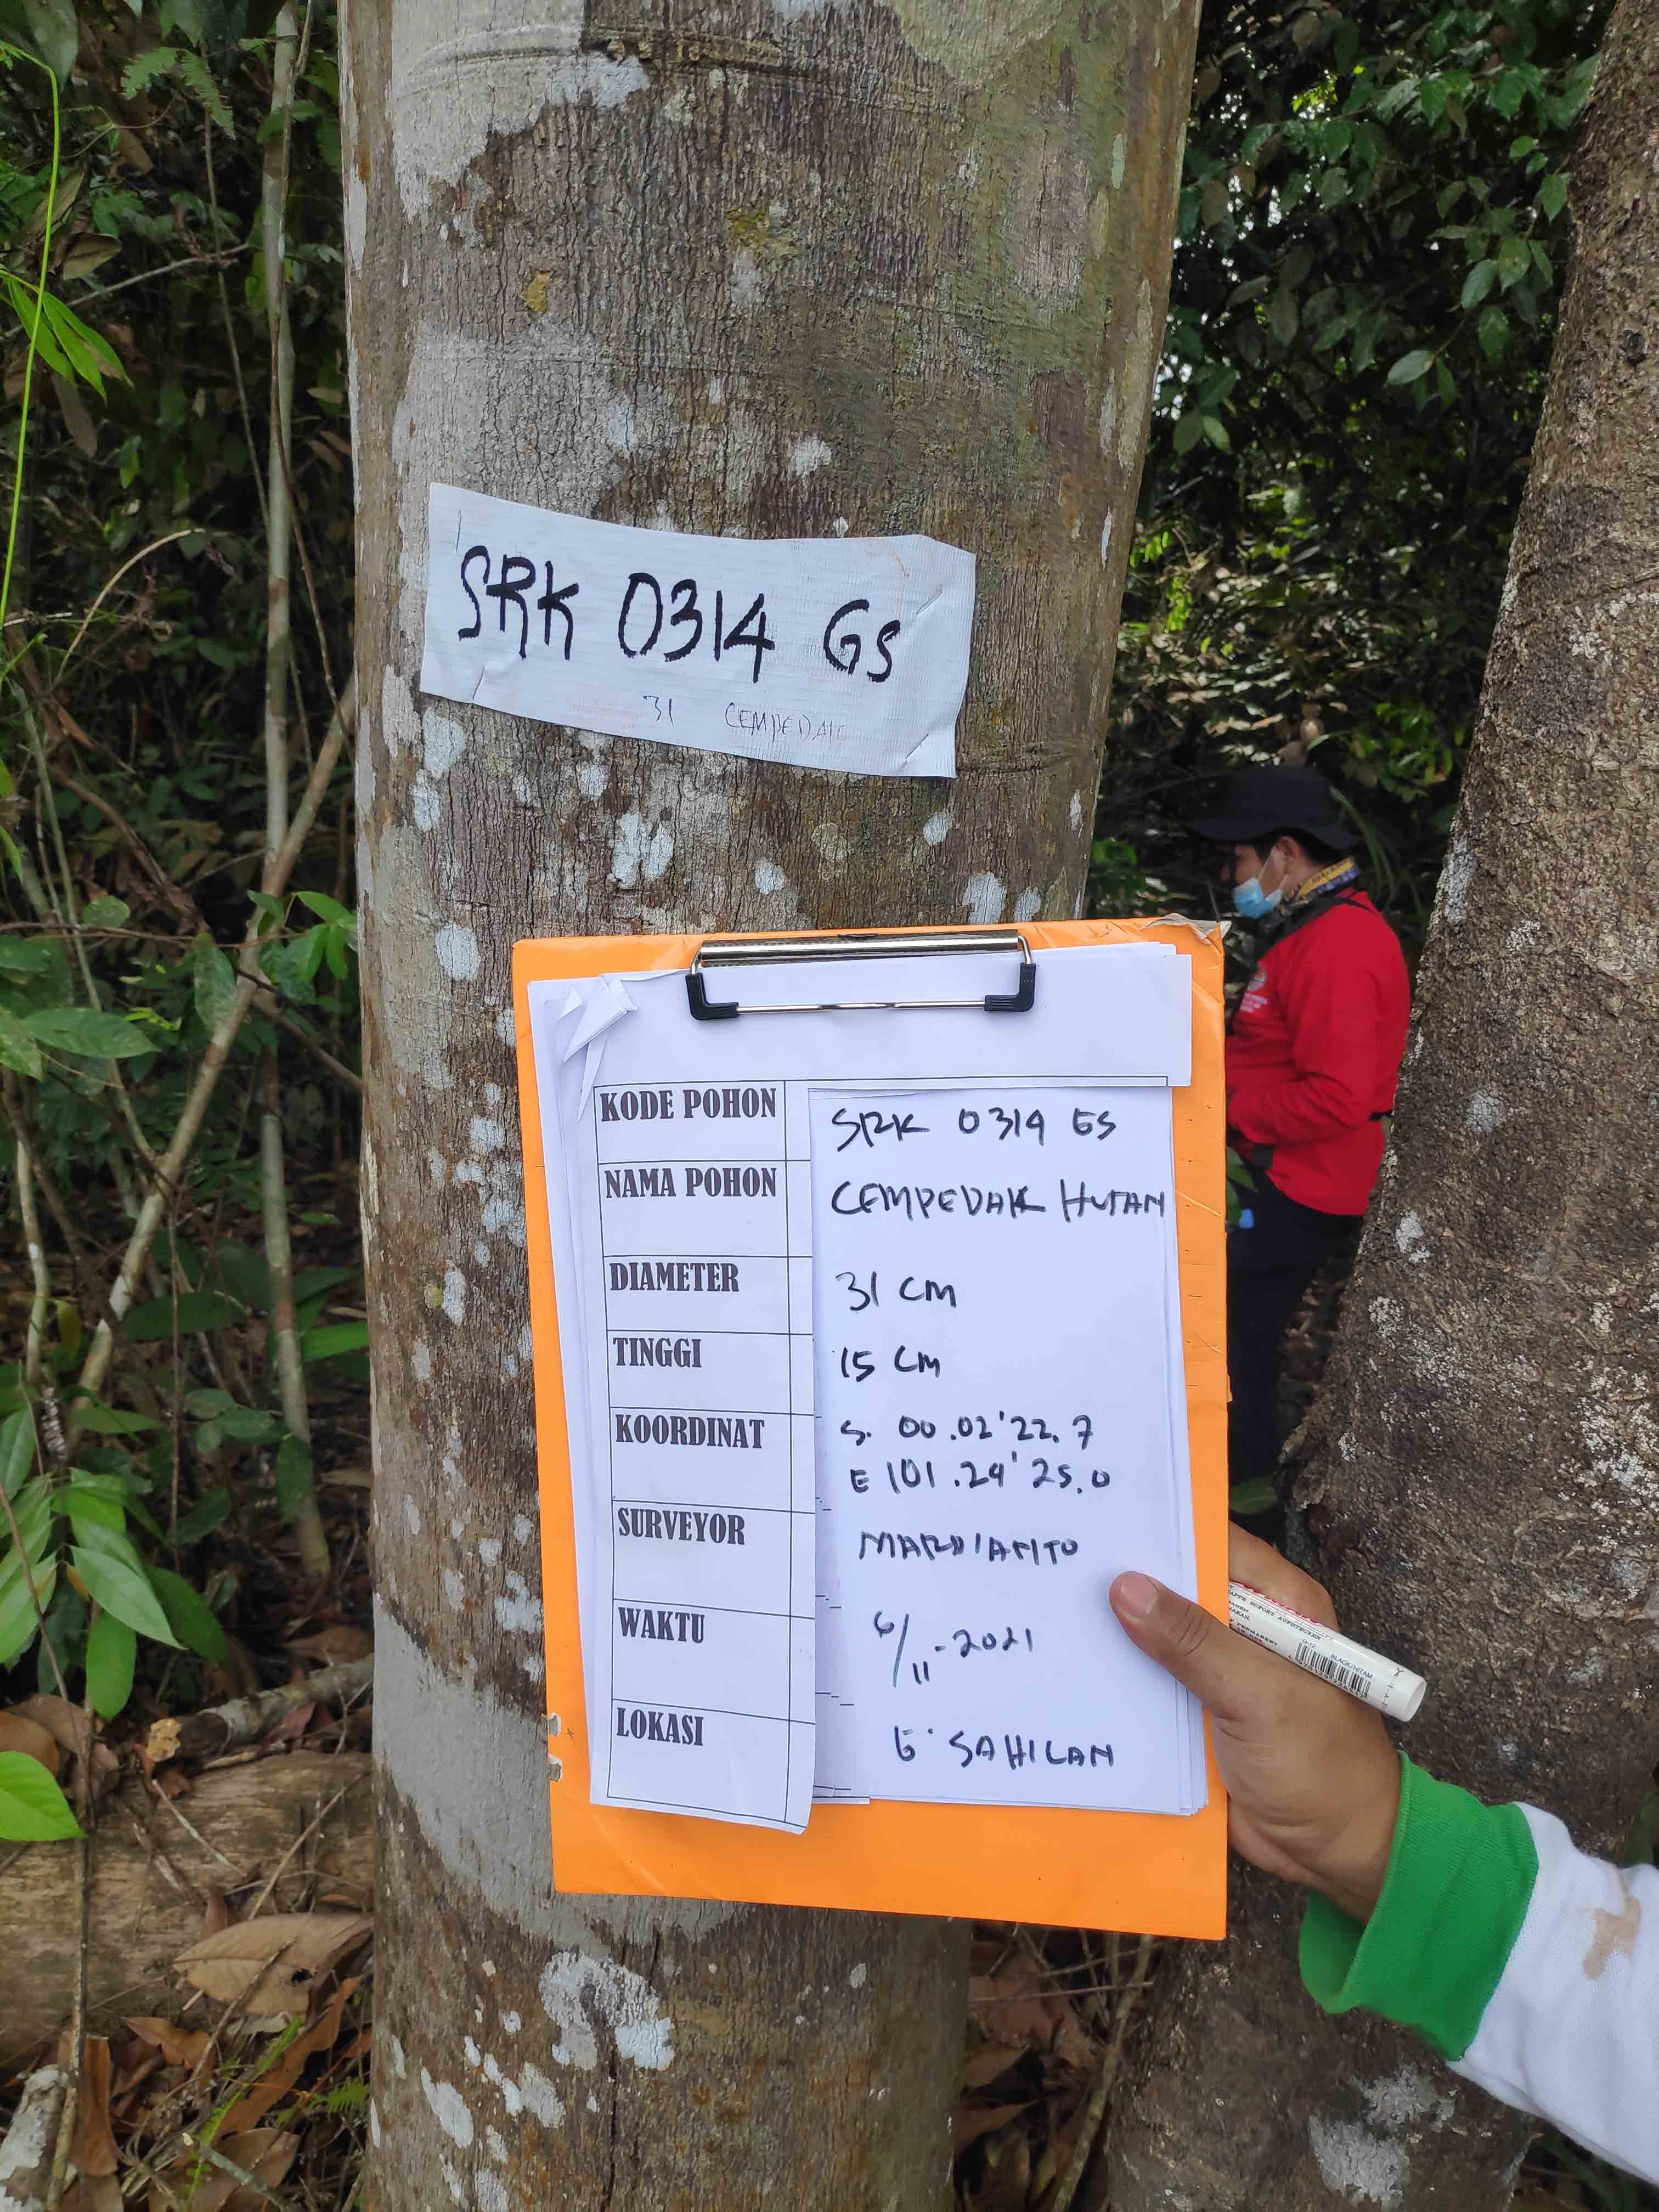 SRK 0314 GS
31 CEMPEDAK
KODE POHON SRK 0314 GS
NAMA POHON CEMPEDAK HUTAN
DIAMETER 31 CM
TINGGI 15 CM
KOORDINAT S. 00.02'22.7
E 101.24'25.0
SURVEYOR MARDIANTO
WAKTU 6/11-2021
LOKASI G. SAHILAN
BLACK/HITAM